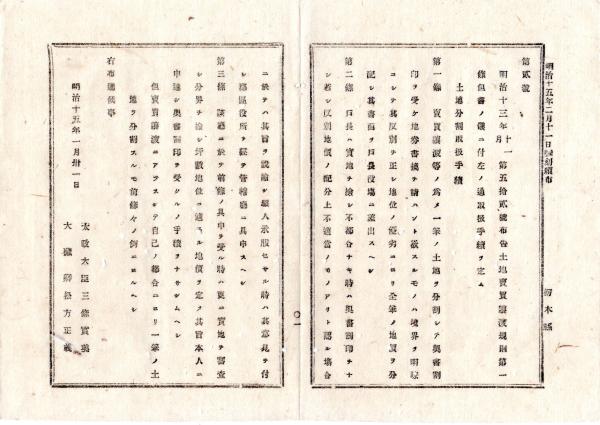 明治十五年二月十一日飜刻頒布
栃木縣
第貳號
明治十三年十一月第五拾貳號布告土地賣買讓渡規則第一
條但書ノ儀ニ付左ノ通取扱手續ヲ定ム
土地分割取扱手續
第一條 賣買讓渡等ノ爲メ一筆ノ土地ヲ分割シテ奥書割
印ヲ受ケ地券書換ヲ請ハント欲スルモノハ境界ヲ明瞭
ニシテ其反別ヲ正シ地位ノ優劣ニヨリ全筆ノ地價ヲ分
記シ其書面ヲ戸長役塲ニ差出スヘシ
第二條 戸長ハ實地ヲ檢シ不都合ナキ時ハ奥書割印ヲナ
シ若シ反別地價ノ配分上不適當ノモノアリト認ル塲合
ニ於テハ其旨ヲ説諭シ願人承服セサル時ハ其意見ヲ付
シ郡區役所ヲ經テ管轄廳ニ具申スヘシ
第三條 該廳ニ於テ前條ノ具申ヲ受ル時ハ更ニ實地ヲ審査
シ分界ヲ檢シ坪數地位ニ適スル地價ヲ定メ其旨本人ニ
申達シ奥書割印ヲ受クルノ手續ヲナサシムヘシ
但賣買讓渡ニアラスシテ自己ノ都合ニヨリ一筆ノ土
地ヲ分割スルモ前條々ノ例ニヨルヘシ
右布達候事
明治十五年一月卅一日
太政大臣三條實美
大藏卿松方正義
〇一